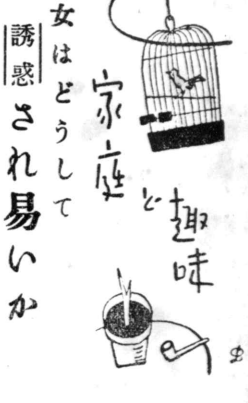 家庭と趣味
女はどうして
誘惑され易いか